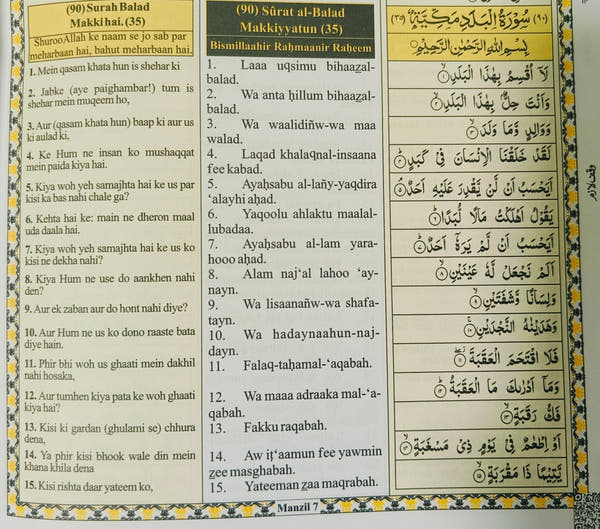 (90) Surah Balad
Makki hai. (35)
ShurooAllah ke naam se jo sab par
meharbaan hai, bahut meharbaan hai.
1. Mein qasam khata hun is shehar ki
2. Jabke (aye paighambar!) tum is
shehar mein muqeem ho,
3. Aur (qasam khata hun) baap ki aur us
ki aulad ki,
4. Ke Hum ne insan ko mushaqqat
mein paida kiya hai.
5. Kiya woh yeh samajhta hai ke us par
kisi ka bas nahi chale ga?
6. Kehta hai ke: main ne dheron maal
uda daala hai.
7. Kiya woh yeh samajhta hai ke us ko
kisi ne dekha nahi?
8. Kiya Hum ne use do aankhen nahi
den?
9. Aur ek zaban aur do hont nahi diye?
10. Aur Hum ne us ko dono raaste bata
diye hain.
11. Phir bhi woh us ghaati mein dakhil
nahi hosaka,
12. Aur tumhen kiya pata ke woh ghaati
kiya hai?
13. Kisi ki gardan (ghulami se) chhura
dena,
14. Ya phir kisi bhook wale din mein
khana khila dena
15. Kisi rishta daar yateem ko,
(90) Sûrat al-Balad
Makkiyyatun (35)
Bismillaahir Raḥmaanir Raḥeem
1. Laaa uqsimu bihaaz̲al-
balad.
2. Wa anta ḥillum bihaaz̲al-
balad.
3. Wa waalidiñw-wa maa
walad.
4. Laqad khalaqnal-insaana
fee kabad.
5. Ayaḥsabu al-lañy-yaqdira
‘alayhi aḥad.
6. Yaqoolu ahlaktu maalal-
lubadaa.
7. Ayaḥsabu al-lam yara-
hooo aḥad.
8. Alam naj‘al lahoo ‘ay-
nayn.
9. Wa lisaanañw-wa shafa-
tayn.
10. Wa hadaynaahun-naj-
dayn.
11. Falaq-taḥamal-‘aqabah.
12. Wa maaa adraaka mal-‘a-
qabah.
13. Fakku raqabah.
14. Aw iṭ‘aamun fee yawmin
z̲ee masghabah.
15. Yateeman z̲aa maqrabah.
(٩٠) سُوْرَةُ الْبَلَدِ مَكِّيَّةٌ (٣٥)
بِسْمِ اللّٰهِ الرَّحْمٰنِ الرَّحِيْمِ
لَاۤ اُقْسِمُ بِهٰذَا الْبَلَدِ ۙ‏ ١
وَاَنْتَ حِلٌّۢ بِهٰذَا الْبَلَدِ ۙ‏ ٢
وَوَالِدٍ وَّمَا وَلَدَ ۙ‏ ٣
لَقَدْ خَلَقْنَا الْاِنْسَانَ فِيْ كَبَدٍ ؕ‏ ٤
اَيَحْسَبُ اَنْ لَّنْ يَّقْدِرَ عَلَيْهِ اَحَدٌ ۘ‏ ٥
يَقُوْلُ اَهْلَكْتُ مَالًا لُّبَدًا ؕ‏ ٦
اَيَحْسَبُ اَنْ لَّمْ يَرَهٗۤ اَحَدٌ ؕ‏ ٧
اَلَمْ نَجْعَلْ لَّهٗ عَيْنَيْنِ ۙ‏ ٨
وَلِسَانًا وَّشَفَتَيْنِ ۙ‏ ٩
وَهَدَيْنٰهُ النَّجْدَيْنِ ۚ‏ ١٠
فَلَا اقْتَحَمَ الْعَقَبَةَ ۖ‏ ١١
وَمَاۤ اَدْرٰىكَ مَا الْعَقَبَةُ ؕ‏ ١٢
فَكُّ رَقَبَةٍ ۙ‏ ١٣
اَوْ اِطْعٰمٌ فِيْ يَوْمٍ ذِيْ مَسْغَبَةٍ ۙ‏ ١٤
يَّتِيْمًا ذَا مَقْرَبَةٍ ۙ‏ ١٥
وقف لازم
Manzil 7